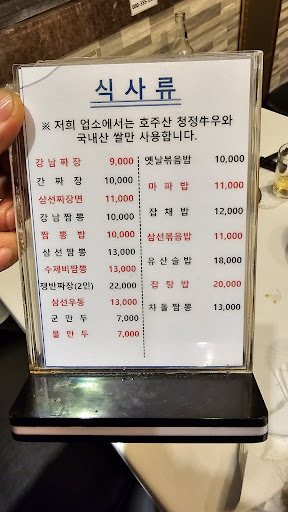 식사류
※ 저희 업소에서는 호주산 청정牛우와
국내산 쌀만 사용합니다.
강남짜장 9,000
간짜장 10,000
삼선짜장면 11,000
강남짬뽕 10,000
짬뽕밥 10,000
삼선짬뽕 13,000
수제비짬뽕 13,000
쟁반짜장(2인) 22,000
삼선우동 13,000
군만두 7,000
물만두 7,000
옛날볶음밥 10,000
마파밥 11,000
잡채밥 12,000
삼선볶음밥 11,000
유산슬밥 18,000
잡탕밥 20,000
차돌짬뽕 13,000